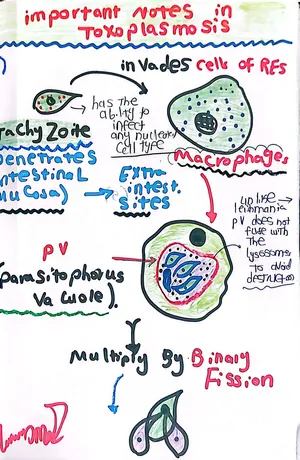 important Notes in
Toxoplasmosis
inVades cells of REs
has the
ability to
infect
any nuclear
cell type
TachyZoite
Macrophages
Penetrates
intestinal
Mucosa)
Extra
intest.
sites
unlike
leihmania
PV does not
fuse with
the
lysosome
to avoid
destruction
PV
(Parasitophorus
Vacuole).
Multiply By Binary
Fission